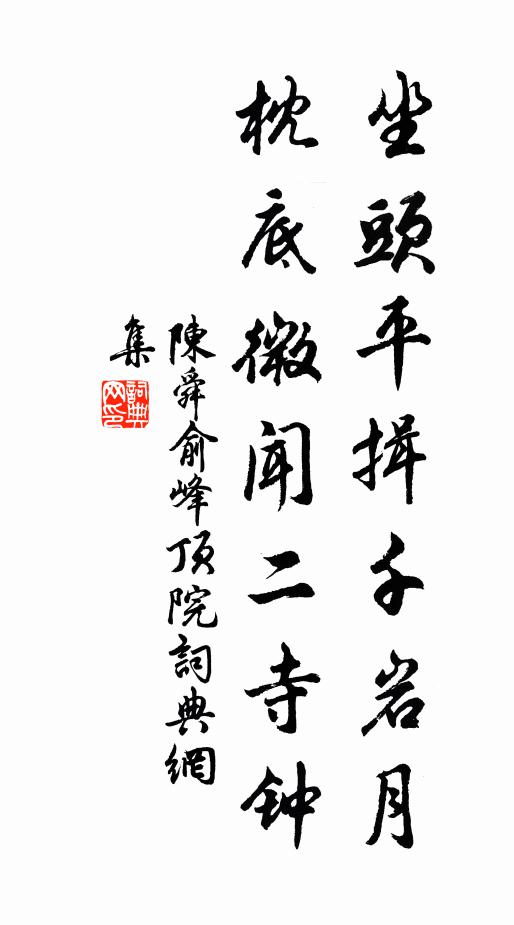 坐頭平揖千岩月
枕底微闻二寺钟
陳舜俞峰顶院詞典網
集
詞典
网印